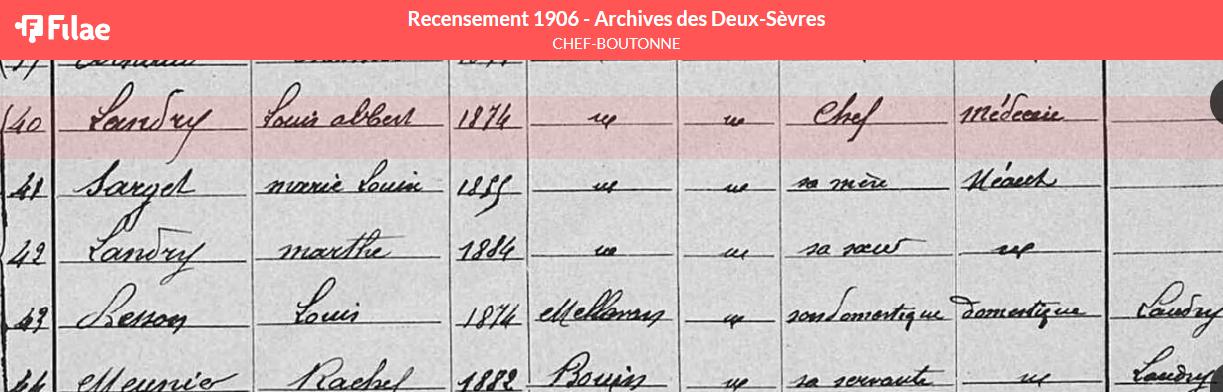 Filae
Recensement 1906 - Archives des Deux-Sèvres
CHEF-BOUTONNE
40 Landry Louis albert 1874 " " Chef Médecin
41 Sarget marie Louise 1855 " " sa mère Néant
42 Landry marthe 1884 " " sa sœur "
43 Besson Louis 1874 Melleran " son domestique domestique Landry
44 Meunier Rachel 1882 Bouin " sa servante " Landry